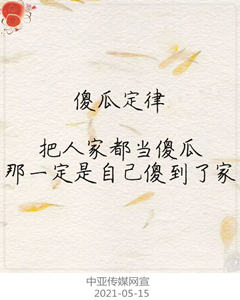 傻瓜定律
把人家都当傻瓜
那一定是自己傻到了家
中亚传媒网宣
2021-05-15